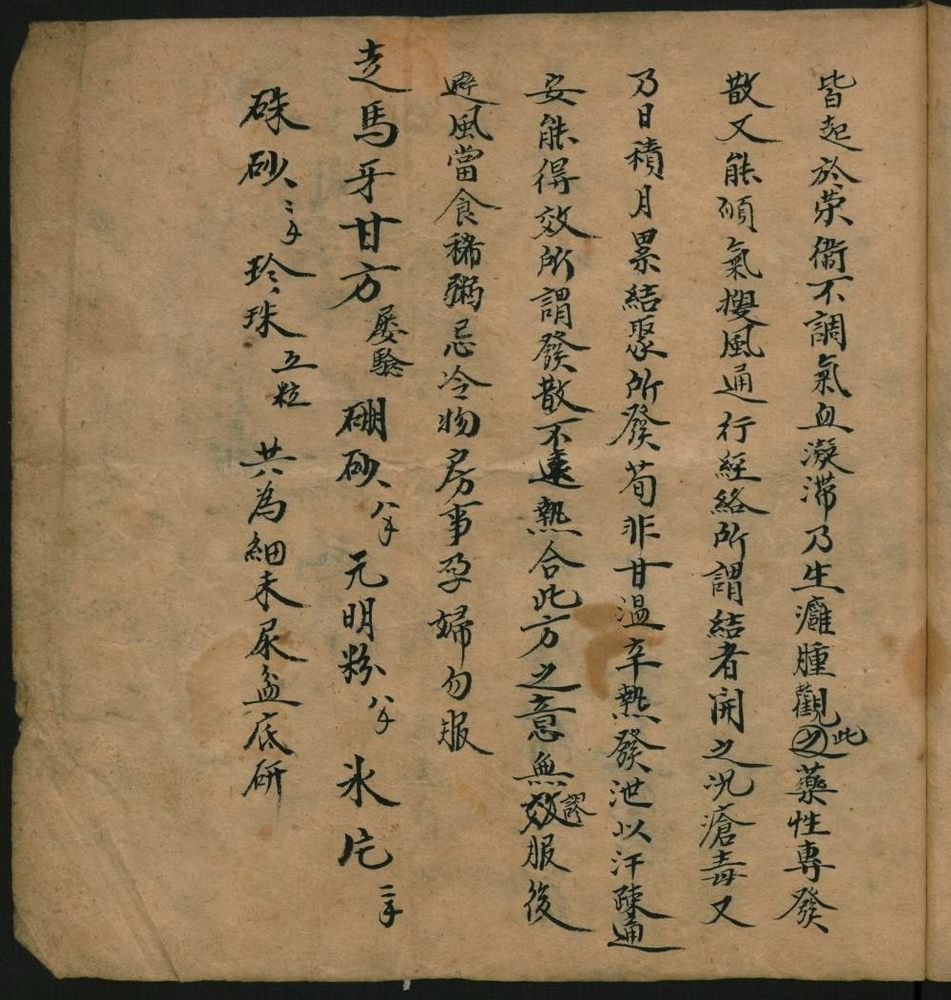 皆起於荣衞不調氣血凝滞乃生癰腫觀此藥性專發
散又能順氣搜風通行經絡所謂結者開之况瘡毒又
乃日積月累結聚所發苟非甘温辛熱發泄以汗疎通
安能得效所謂發散不遠熱合此方之意無謬效服後
避風當食稀粥忌冷物房事孕婦勿服
走馬牙甘方屡騐 硼砂八分 元明粉八分 氷片二分
硃砂二分 珍珠五粒 共為細末尿盆底研